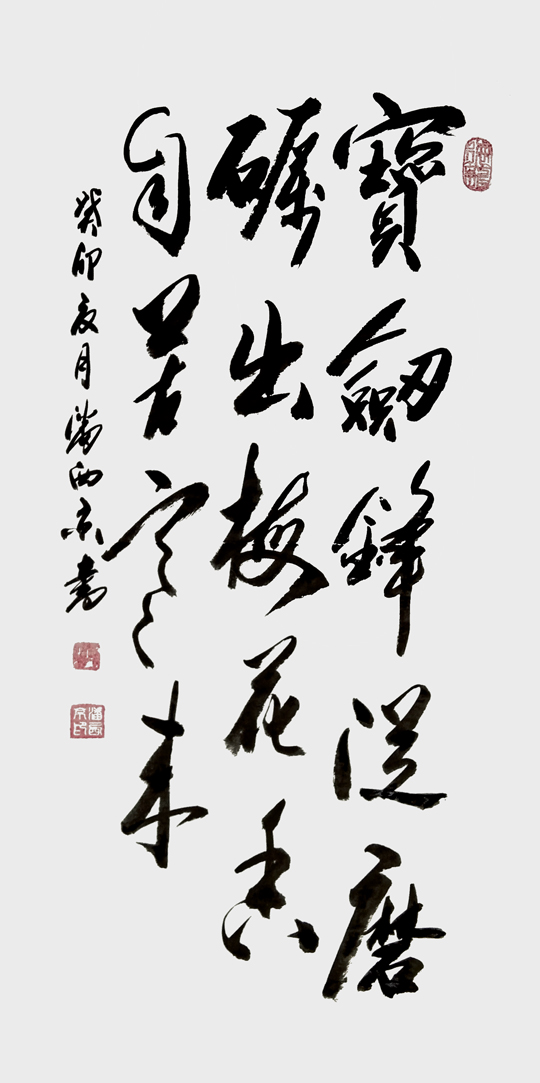 寶劍鋒從磨
礪出梅花香
自苦寒來
癸卯夏月潘西京書